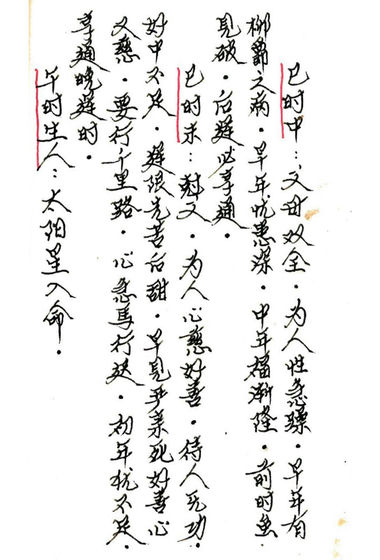 巳时中：父母双全．为人性急躁．早年有
之病．早年忧患深．中年福渐隆．前时
见破．后運必享通．
巳时末：尅父．为人心慈好善．待人无功．
好中不足．運限先苦后甜．早见严亲死好善心
又慈．要行千里路．心急马行迟．初年犹不足．
享通晚運时．
午时生人：太阳星入命．